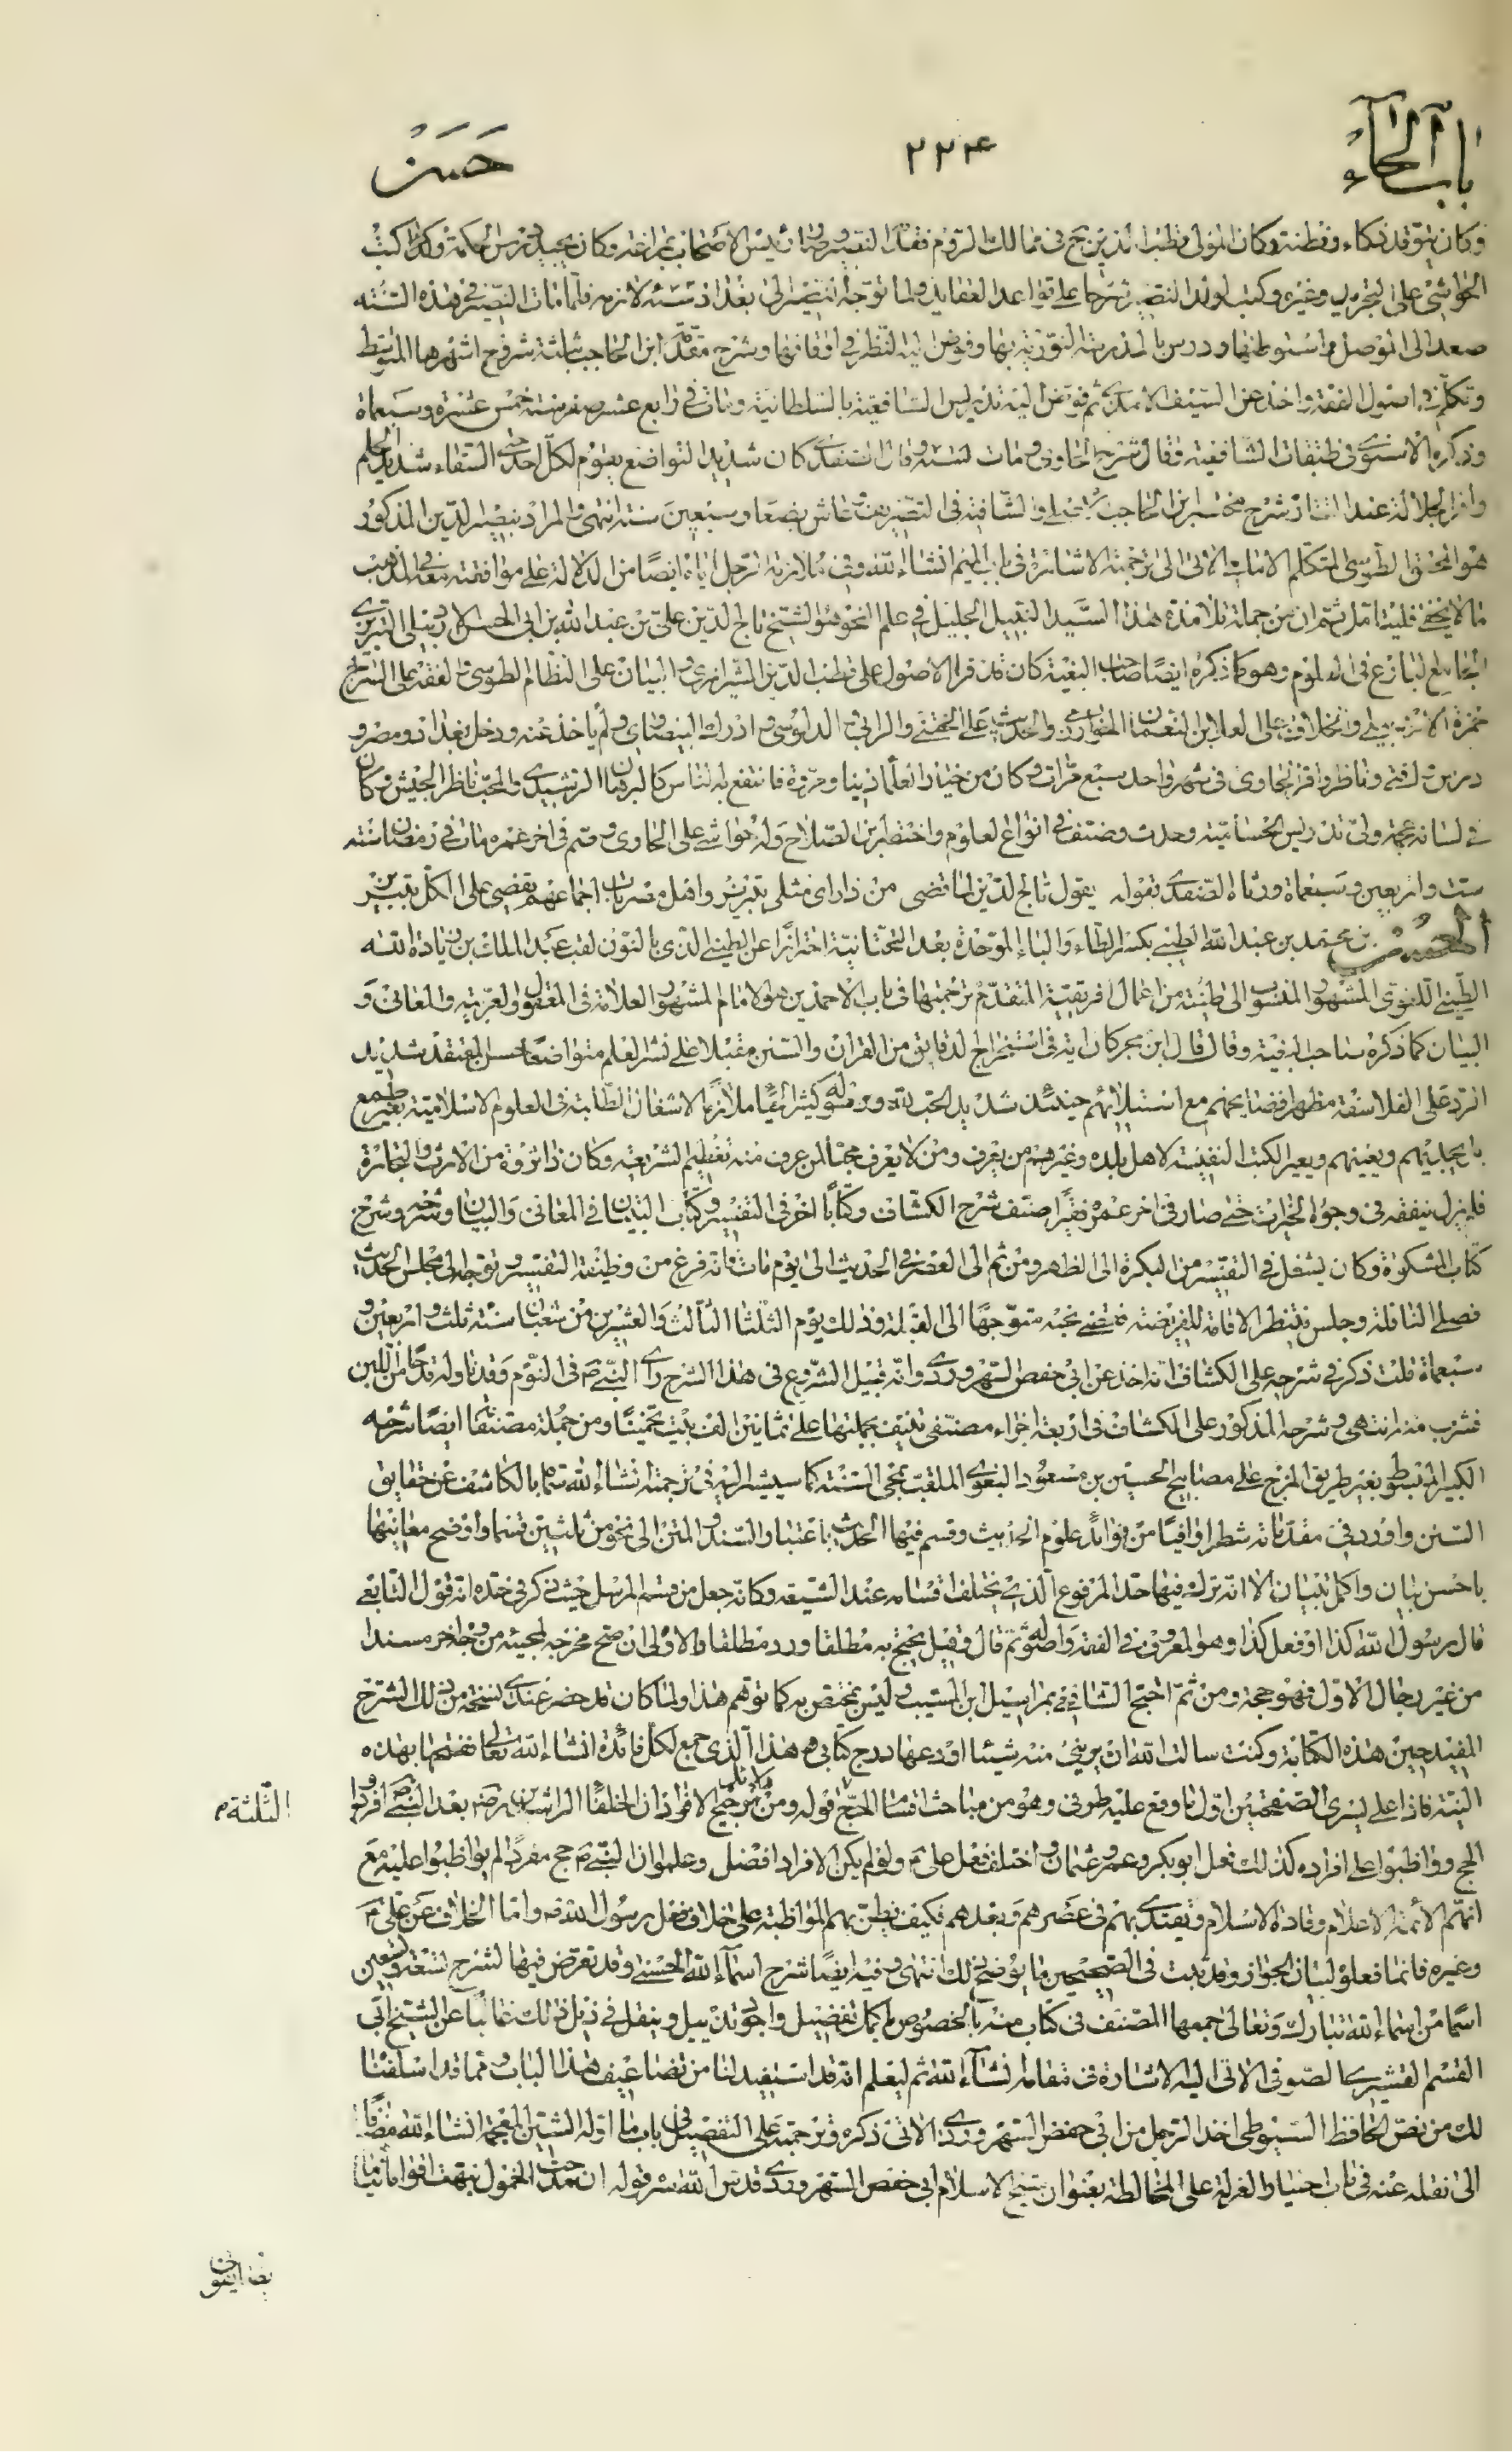 باب الحاء
٢٢٤
حسن
وكان يتوقد ذكاء وفطنة وكان المولى قطب الدين حي في ممالك الروم فقدم النصير وصار رئيس الاصحاب بمراغة وكان يجيد درس الحكمة وكتب
الحواشي على التجريد وغيره وكتب لولد النصير شرحا على قواعد العقايد ولما توجه النصير الى بغداد سنة لازمه فلما مات النصير في هذه السنة
صعد الى الموصل واستوطنها ودرس بالمدرسة النورية بها وفوض اليه النظر في اوقافها وشرح مقدمة ابن الحاجب بثلثة شروح اشهرها المتوسط
وتكلم في اصول الفقه واخذ عن السيف الآمدي ثم فوض اليه تدريس الشافعية بالسلطانية ومات في رابع عشر صفر سنة خمس عشرة وسبعماة
وذكره الاسنوي في طبقات الشافعية فقال شرح الحاوي ومات سنة وقال الصفدي كان شديد التواضع يقوم لكل احد حتى السقاء شديد الحلم
وافر الجلالة عند التتار شرح مختصر ابن الحاجب والشافية في التصريف عاش بضعا وسبعين سنة انتهى والمراد بنصير الدين المذكور
هو المحقق الطوسي المتكلم الامامي الاتي الى ترجمته الاشارة في باب الميم انشاء الله وفي ملازمة الرجل اياه ايضا من الدلالة على موافقته معه في المذهب
ما لا يخفى فليتامل ثم ان من جملة تلامذة هذا السيد النبيل الجليل في علم النحو هو الشيخ تاج الدين علي بن عبد الله بن ابي الحسن الاردبيلي التبريزي
الجامع البارع في العلوم وهو كما ذكره ايضا صاحب البغية كان قد قرا الاصول على قطب الدين الشيرازي والبيان على النظام الطوسي والفقه على السراج
حمزة الاردبيلي والخلاف على العلا بن النعمان الخوارزمي والحديث على الختني والواني والدبوسي وادرك البيضاوي ولم ياخذ عنه ودخل بغداد ومصر و
درس وافتى وناظر واقرا الحاوي في شهر واحد سبع مرات وكان من خيار العلماء دينا ومروة فانتفع به الناس كالبرهان الرشيدي والمحب ناظر الجيش وكان
في لسانه عجمة ولي تدريس الحسامية وحدث وصنف في انواع العلوم واختصر ابن الصلاح وله حواشي على الحاوي وصم في اخر عمره مات في رمضان سنة
ست واربعين وسبعماة ورثاه الصفدي بقوله يقول تاج الدين لما قضى من ذا راى مثلي بتبريز واهل مصر بات اجماعهم يقضي على الكل بتبريز
بن محمد بن عبد الله الطيبي بكسر الطاء والباء الموحدة بعد التحتانية احترازا عن الطبني الذي بالنون لقب عبد الملك بن زيادة الله
الطبني اللغوي المشهور المنسوب الى طبنة من اعمال افريقية المتقدم ترجمتها في باب الاحمدين هو الامام المشهور العلامة في المعقول والعربية والمعاني و
البيان كما ذكره صاحب البغية وقال قال ابن حجر كان اية في استخراج الدقايق من القران والسنن مقبلا على نشر العلم متواضعا حسن المعتقد شديد
الرد على الفلاسفة مظهرا فضايحهم مع استيلائهم حينئذ شديد الحب لله ورسوله كثير الحياء ملازما لاشغال الطلبة في العلوم الاسلامية بغير طمع
بل يحديهم ويعينهم ويعير الكتب النفيسة لاهل بلده وغيرهم من يعرف ومن لا يعرف محبا لمن عرف منه تعظيم الشريعة وكان ذا ثروة من الارث والتجارة
فلم يزل ينفقه في وجوه الخيرات حتى صار في اخر عمره فقيرا صنف شرح الكشاف وكتابا اخر في التفسير وكتاب التبيان في المعاني والبيان وشرحه وشرح
كتاب المشكوة وكان يشتغل في التفسير من البكرة الى الظهر ومن ثم الى العصر في الحديث الى يوم مات فانه فرغ من وظيفة التفسير وتوجه الى مجلس الحديث
فصلى النافلة وجلس ينتظر الاقامة للفريضة فقضى نحبه متوجها الى القبلة وذلك يوم الثلثا الثالث والعشرين من شعبان سنة ثلث واربعين و
سبعماة قلت ذكر في شرحه على الكشاف انه اخذ عن ابي حفص السهروردي وانه قبيل الشروع في هذا الشرح راى النبي ص في النوم وقد ناوله قدحا من اللبن
فشرب منه انتهى وشرحه المذكور على الكشاف في اربعة اجزاء مصنفي تنيف بجملتها على ثمانين الف بيت تخمينا ومن جملة مصنفاته ايضا شرحه
الكبير المبسوط بغير طريق المزج على مصابيح الحسين بن مسعود البغوي الملقب بمحي السنة كما سيشار اليه في ترجمته انشاء الله سماه بالكاشف عن حقايق
السنن واورد في مقدماته شطرا وافيا من فوائد علوم الحديث وقسم فيها الحديث باعتبار السند والمتن الى نحو من ثلثين قسما واوضح معانيها
باحسن بيان واكمل تبيان الا انه ترك فيها حد المرفوع الذي يختلف اقسامه عند الشيعة وكانه جعل من قسم المرسل حيث ذكر في حده انه قول التابعي
قال رسول الله كذا او فعل كذا وهو المعروف في الفقه واصوله ثم قال وقيل يحتج به مطلقا ورد مطلقا والاولى ان صح مخرجه لمجيئه من وجه اخر مسندا
من غير رجال الاول فهو حجة ومن ثم احتج الشافعي بمراسيل ابن المسيب وليس بمختص به كما توهم هذا ولما كان قد حضر عندي نسخة من ذلك الشرح
المفيد حين هذه الكتابة وكنت سالت الله ان يريني منه شيئا اودعها درج كتابي هذا الذي جمع لكل فائدة انشاء الله تعالى ففتحها بهذه
النية فاذا على يسرى الصفحتين اول ما وقع عليه طرفي وهو من مباحث اقسام الحج قوله ومن دلائل ترجيح الافراد ان الخلفا الراشدين رض بعد النبي ص افردوا
الثلثة م
الحج وواظبوا على افراده كذلك فعل ابو بكر وعمر وعثمان واختلف فعل علي ع ولو لم يكن الافراد افضل وعلموا ان النبي ص حج مفردا لم يواظبوا عليه مع
انهم الائمة الاعلام وقادة الاسلام ويقتدى بهم في عصرهم وبعدهم فكيف يظن بهم المواظبة على خلاف فعل رسول الله ص واما الخلاف عن علي ع
وغيره فانما فعلوه لبيان الجواز وقد ثبت في الصحيحين ما يوضح ذلك انتهى وفيه ايضا شرح اسماء الله الحسنى وقد تعرض فيها لشرح تسعة وتسعين
اسما من اسماء الله تبارك وتعالى جمعها المصنف في كتاب منه بالخصوص باكمل تفضيل واجود تذييل وينقل في ذيل ذلك غالبا عن الشيخ ابي
القسم القشيري الصوفي الاتي اليه الاشارة في مقامه انشاء الله ثم ليعلم انه قد استفيد لنا من تضاعيف هذا الباب ومما قد اسلفنا
لك من نص الحافظ السيوطي اخذ الرجل من ابي حفص السهروردي الاتي ذكره وترجمته على التفصيل في باب ما اوله الشين المعجمة انشاء الله مضافا
الى نقله عنه في باب اختيار العزلة على المخالطة بعنوان شيخ الاسلام ابي حفص السهروردي قدس الله سره قوله ان حديث الخمول نبهت اقواما